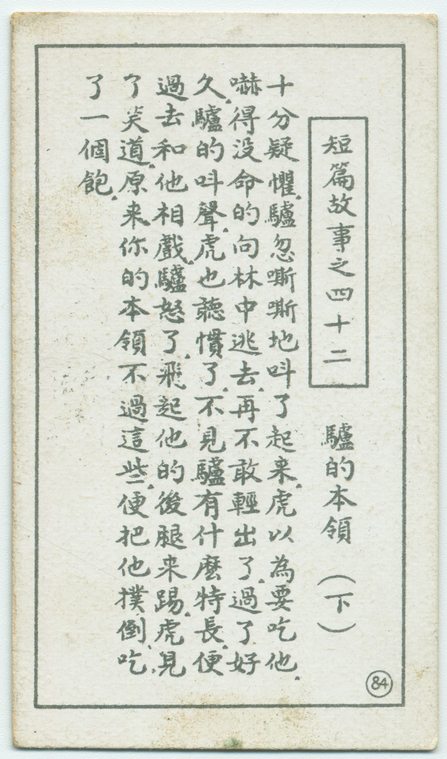 短篇故事之四十二
驢的本領（下）
十分疑懼，驢忽嘶嘶地呌了起來，虎以為要吃他，
嚇得没命的向林中逃去，再不敢輕出了。過了好
久，驢的呌聲，虎也聽慣了，不見驢有什麽特長，便
過去和他相戲，驢怒了，飛起他的後腿来踢，虎見
了笑道，原来你的本領不過這些，便把他撲倒，吃
了一個飽。
84